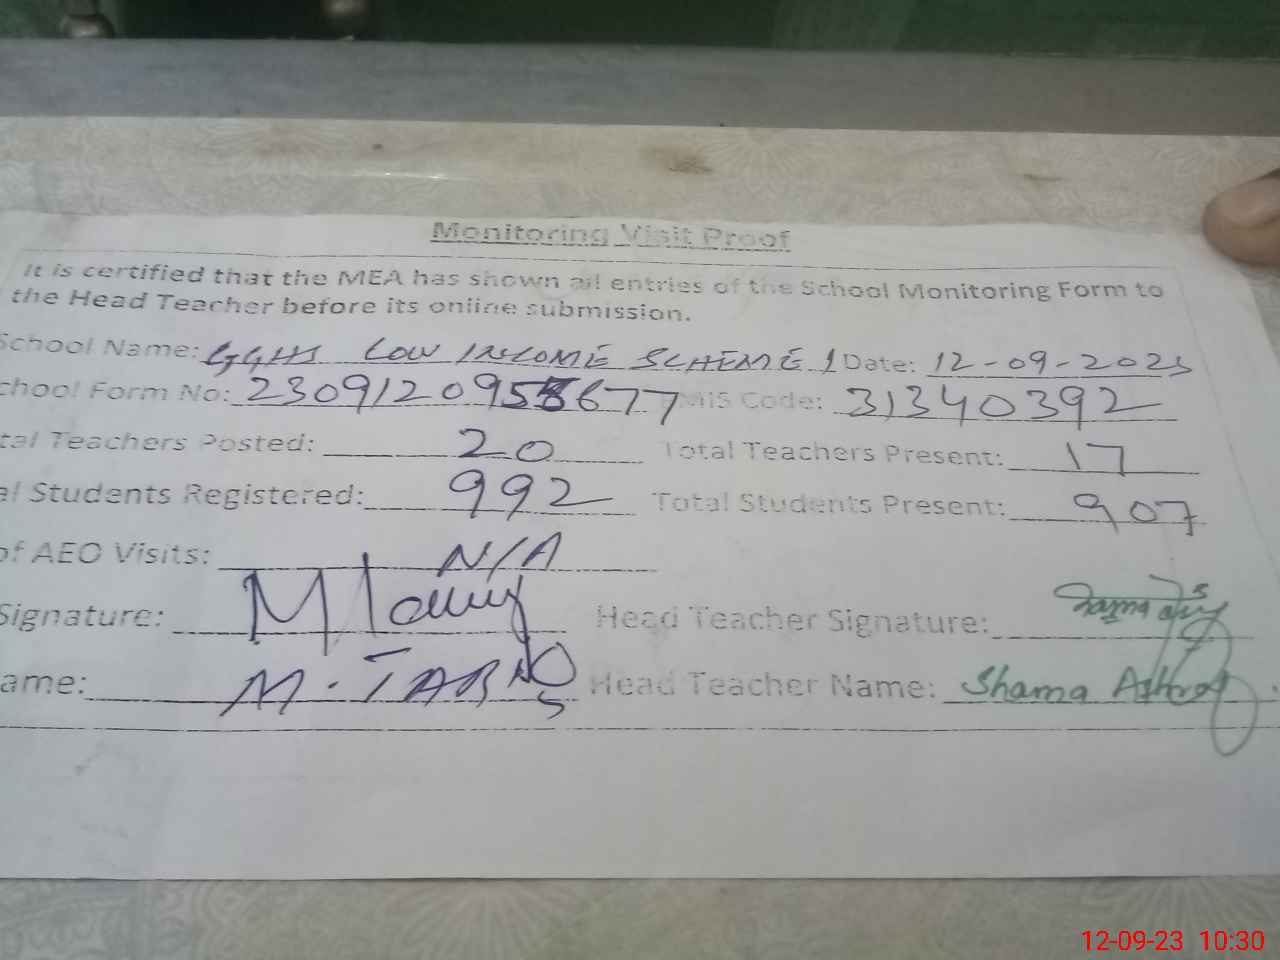 Monitoring Visit Proof
It is certified that the MEA has shown all entries of the School Monitoring Form to
the Head Teacher before its online submission.
School Name: GGHS LOW INCOME SCHEME 1 Date: 12-09-2023
chool Form No: 2309120955677 EMIS Code: 31340392
tal Teachers Posted: 20 Total Teachers Present: 17
al Students Registered: 992 Total Students Present: 907
of AEO Visits: N/A
Signature: Head Teacher Signature:
ame: M. TARIQ Head Teacher Name: Shama Ashraf
12-09-23 10:30